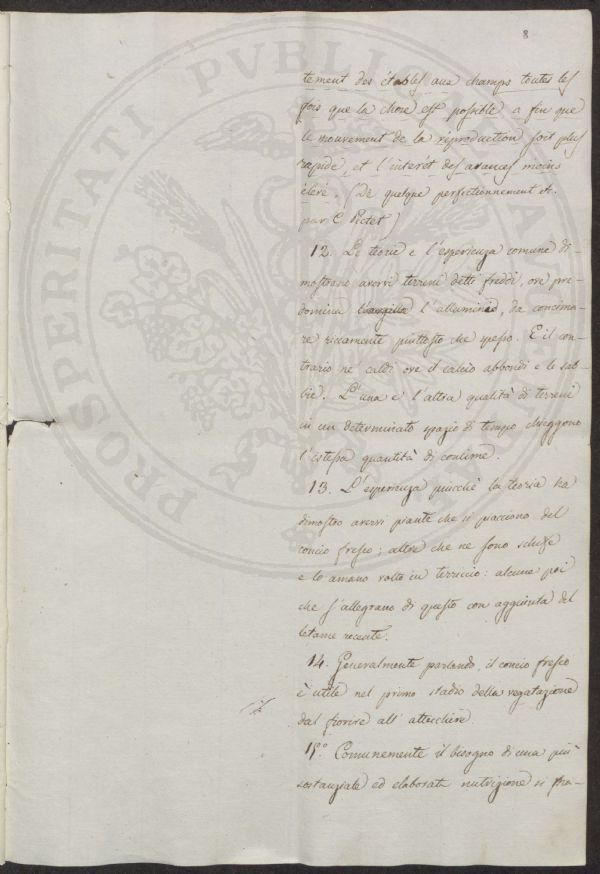 8
tement des étables aux champs toutes les
fois que la chose est possible a fin que
le mouvement de la reproduction soit plus
rapide, et l'interêt des avances moins
élevé. (De quelque perfectionnement etc.
par C. Pictet)
12. Le teorie e l'esperienza comune di-
mostrano avervi terreni detti freddi, ove pre-
domina l'argilla l'alluminio, da concima-
re riccamente piuttosto che spesso. E il con-
trario ne' caldi ove il calcio abbondi e le sab-
bie. L'una e l'altra qualità di terreni
in un determinato spazio di tempo chieggono
l'istessa quantità di concime.
13. L'esperienza piucchè la teoria ha
dimostro avervi piante che si piacciono del
concio fresco; altre che ne sono schife
e lo amano volto in terriccio: alcune poi
che s'allegrano di questo con aggiunta del
letame recente.
14. Generalmente parlando, il concio fresco
è utile nel primo stadio della vegetazione
dal fiorire all' attecchire.
15.° Comunemente il bisogno di una più
sostanziata ed elaborata nutrizione si
PROSPERITATI PUBLICAE